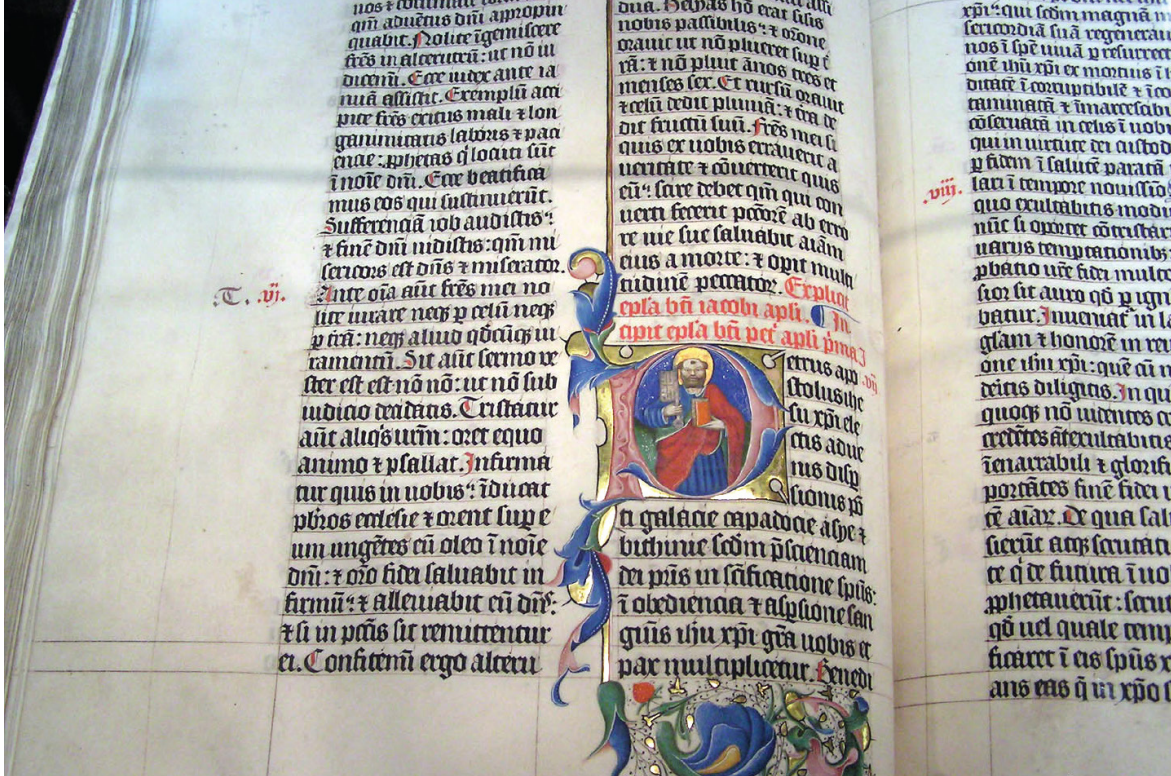 qm̄ aduētus dn̄i apropin
quabit. Nolite īgemiscere
fr̄es in alterutrū: ut nō iu
dicemī. Ecce iudex ante ia
nuā assistit. Exemplū acci
pite fr̄es exitus mali ⁊ lon
ganimitatis laboris ⁊ paci
encie: ꝓphetas q̄ locuti sūt
ī noīe dn̄i. Ecce beatifica
mus eos qui sustinuerūt.
Sufferenciā iob audistis:
⁊ finē dn̄i uidistis: qm̄ mi
sericors est dn̄s ⁊ miserator.
.T. .vj. Ante oīa aūt fr̄es mei no
lite iurare neqꝫ ꝑ celū neqꝫ
ꝑ t̄rā: neqꝫ aliud qd̄cūqꝫ iu
ramentū. Sit aūt sermo ve
ster est est nō nō: ut nō sub
iudicio decidatis. Tristatur
aūt aliq̄s ur̄m: oret equo
animo ⁊ psallat. Infirma
tur quis in uobis: īducat
pb̄ros ecclesie ⁊ orent suꝑ e
um ungētes eū oleo ī noīe
dn̄i: ⁊ or̄o fidei saluabit in
firmū: ⁊ alleuiabit eū dn̄s:
⁊ si in pcc̄is sit remittentur
ei. Confitemī ergo alteru
dua. Helyas hō erat sil̄is
nobis passibilis: ⁊ or̄one
orauit ut nō plueret suꝑ t̄
rā: ⁊ nō pluit ānos tres et
menses sex. Et rursū orauit
⁊ celū dedit pluuiā: ⁊ t̄ra de
dit fructū suū. Fr̄es mei si
quis ex uobis errauerit a
ueritate ⁊ cōuerterit quis
eū: scire debet qm̄ qui con
uerti fecerit pcc̄orē ab erro
re uie sue saluabit aīam
eius a morte: ⁊ opit multi
tudinē peccator̄. Explicit
epl̄a bt̄i iacobi apl̄i. In
cipit epl̄a bt̄i pet͛ apl̄i p̄ma
Petrus apo .vij
stolus ih̄c
su xp̄i ele
ctis adue
nis disꝑ
sionis pō
ti galacie capadocie asye ⁊
bithinie scd̄m p̄scienciam
dei pr̄is in sc̄ificatione spūs:
ī obediencia ⁊ asꝑsione san
guīs ih̄u xp̄i gr̄a uobis et
pax multiplicetur. Benedi
xp̄i: qui scd̄m magnā
sericordiā suā regenerau
nos ī spē uiuā ꝑ resurrect
onē ih̄u xp̄i ex mortuis ī
ditatē ī corruptibilē ⁊ īcō
taminatā ⁊ īmarcescibi
cōseruatā in celis ī uobi
qui in uirtute dei custod
ꝑ fidem ī salutē paratā
.viij. lari ī tempore nouissīo
quo exultabitis modi
nūc si oportet cōtristar
uariis temptationibꝫ
ꝓbatio ur̄e fidei multo
sior sit auro qd̄ ꝑ ign
batur. Inueniat͛ in la
glam̄ ⁊ honorē in reu
one ih̄u xp̄i: quē cū n
dētis diligitis. In qu
quoqꝫ nō uidentes c
credētes āt exultabitis
īenarrabili ⁊ glorifi
portātes finē fidei
tē aīar̄. De qua sal
sierūt atqꝫ scrutati
te q̄ de futura ī uo
ꝓphetauerūt: scru
qd̄ uel quale tem
ficaret ī eis spūs x
ans eas q̄ in xp̄o